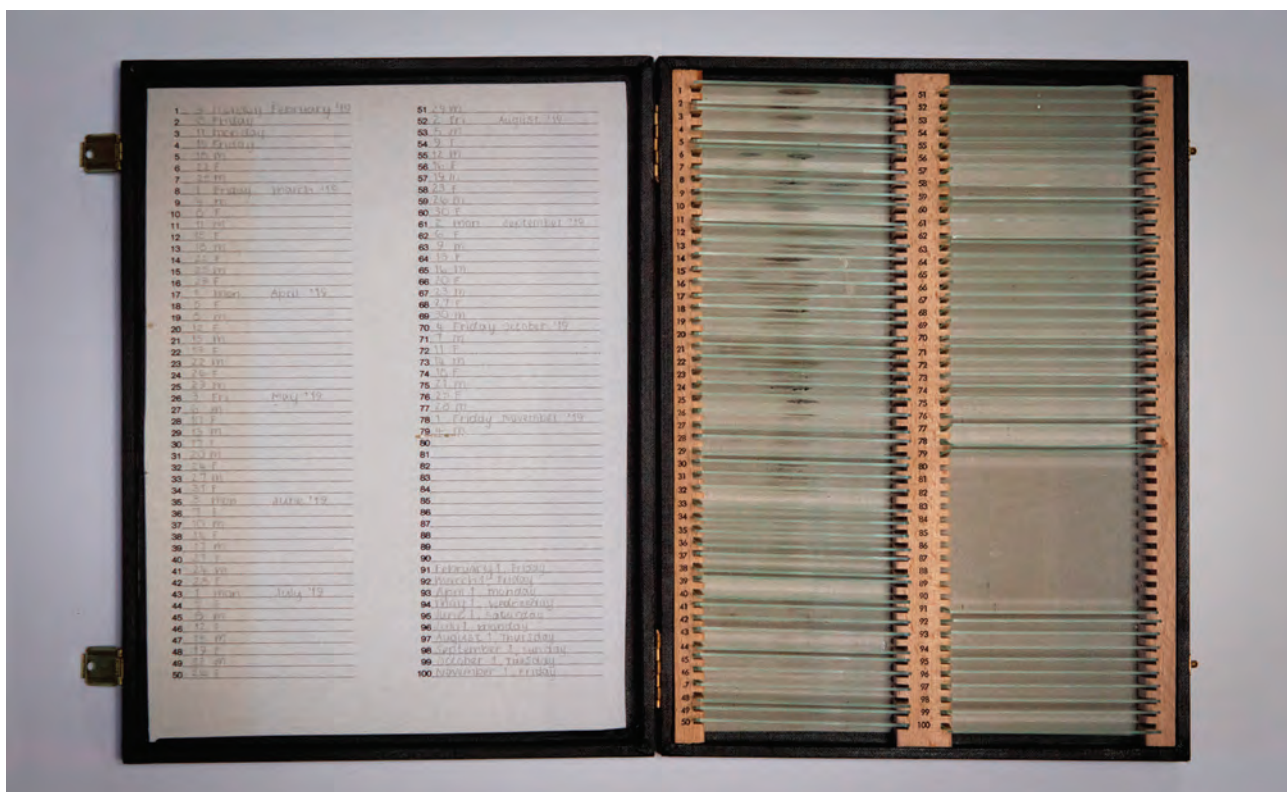 1 Monday February '19
2 8 Friday
3 11 monday
4 15 Friday
5 18 m
6 22 F
7 25 m
8 1 Friday march '19
9 4 m
10 8 F
11 11 m
12 15 F
13 18 m
14 22 F
15 25 m
16 29 F
17 1 mon April '19
18 5 F
19 8 m
20 12 F
21 15 m
22 19 F
23 22 m
24 26 F
25 29 m
26 3 Fri May '19
27 6 m
28 10 F
29 13 m
30 17 F
31 20 m
32 24 F
33 27 m
34 31 F
35 3 mon June '19
36 7 F
37 10 m
38 14 F
39 17 m
40 21 F
41 24 m
42 28 F
43 1 mon July '19
44
45 8 m
46 12 F
47 15 m
48 19 F
49 22 m
50 26 F
51 29 m
52 2 Fri August '19
53 5 m
54 9 F
55 12 m
56 16 F
57 19 m
58 23 F
59 26 m
60 30 F
61 2 mon september '19
62 6 F
63 9 m
64 13 F
65 16 m
66 20 F
67 23 m
68 27 F
69 30 m
70 4 Friday october '19
71 7 m
72 11 F
73 14 m
74 18 F
75 21 m
76 25 F
77 28 m
78 1 Friday November '19
79 4 m
80
81
82
83
84
85
86
87
88
89
90
91 February 1, Friday
92 March 1, Friday
93 April 1, monday
94 May 1, wednesday
95 June 1, Saturday
96 July 1, monday
97 August 1, Thursday
98 September 1, sunday
99 October 1, Tuesday
100 November 1, Friday
1
2
3
4
5
6
7
8
9
10
11
12
13
14
15
16
17
18
19
20
21
22
23
24
25
26
27
28
29
30
31
32
33
34
35
36
37
38
39
40
41
42
43
44
45
46
48
49
50
51
52
53
54
55
56
57
58
59
60
61
62
63
64
65
66
67
68
69
70
71
72
73
74
75
76
77
78
79
80
81
82
83
84
85
86
87
88
89
90
91
92
93
94
95
96
97
98
99
100